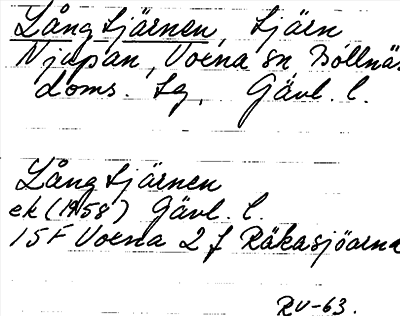 Lång tjärnen, tjärn
Njupan, Voxna sn, Bollnäs
doms. sg, Gävl. l.
Lång tjärnen
ek (1958) Gävl. l.
15F Voxna 2 f Råkasjöarna
RV-63.